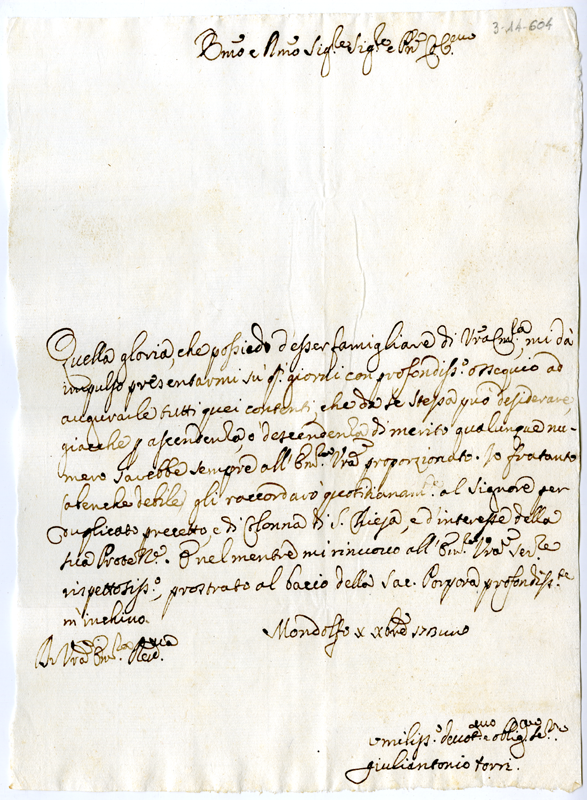 3-14-604
Emo e Rmo Sigre Sigre e Pne Colmo
Quella gloria, che possiedo d'esser famigliare di Vra Emza, mi dà
impulso presentarmi sù gior̃ni con profondisso ossequio ad
augurarle tutti quei contenti, che da se stessa può desiderare,
giacche p ascendenza, o' descendenza di merito qualunque nu-
mero sarebbe sempre all'Emza Vra proporzionato. Io frattanto
(benche debile) gli raccordarò quotidianamte al Signore per
duplicato precetto e di Colonna di S. Chiesa, e d'interesse della
sua Protne. E nel mentre mi rinuovo all'Emza Vra Serre
rispettosisso, prostrato al bacio della Sac. Porpora profondisste
m'inchino.
Mondolfo X Xbre 1713
Di Vra Emza Revma
Umilisso devotmo obligmo Sre
Giuliantonio Torri.